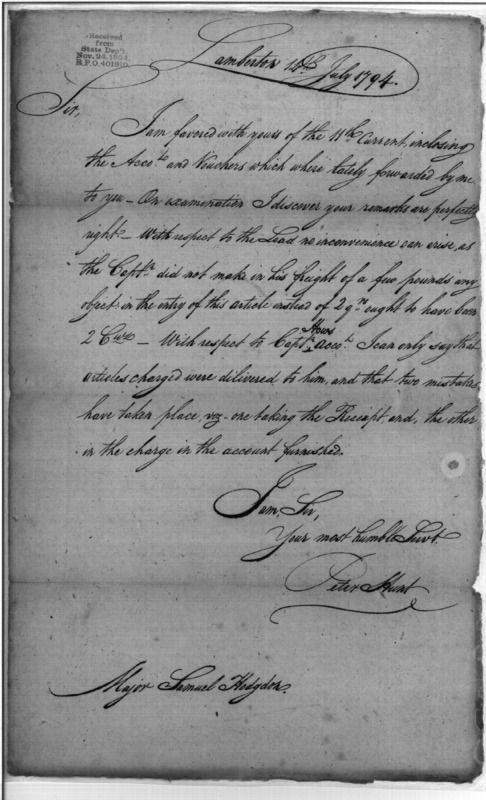 Received
from
State Dep't.
Nov. 24, 1894,
R.P.O. 401810.
Lamberton 14th July 1794.
Sir,
I am favored with yours of the 11th Current, inclosing
the Accots and Vouchers which where lately forwarded by me
to you – On examination I discover your remarks are perfectly
right – With respect to the Lead no inconvenience can arise, as
the Captn did not make in his freight of a few pounds any
object: in the entry of this article instead of 2 qrs ought to have been
2 Cwt – With respect to Captn Hows accot. I can only say that
articles charged were delivered to him, and that two mistakes
have taken place, viz – one taking the Receipt, and, the other
in the charge in the account furnished.
I am, Sir,
Your most humble Servt.
Peter Hunt
Major Samuel Hodgdon.